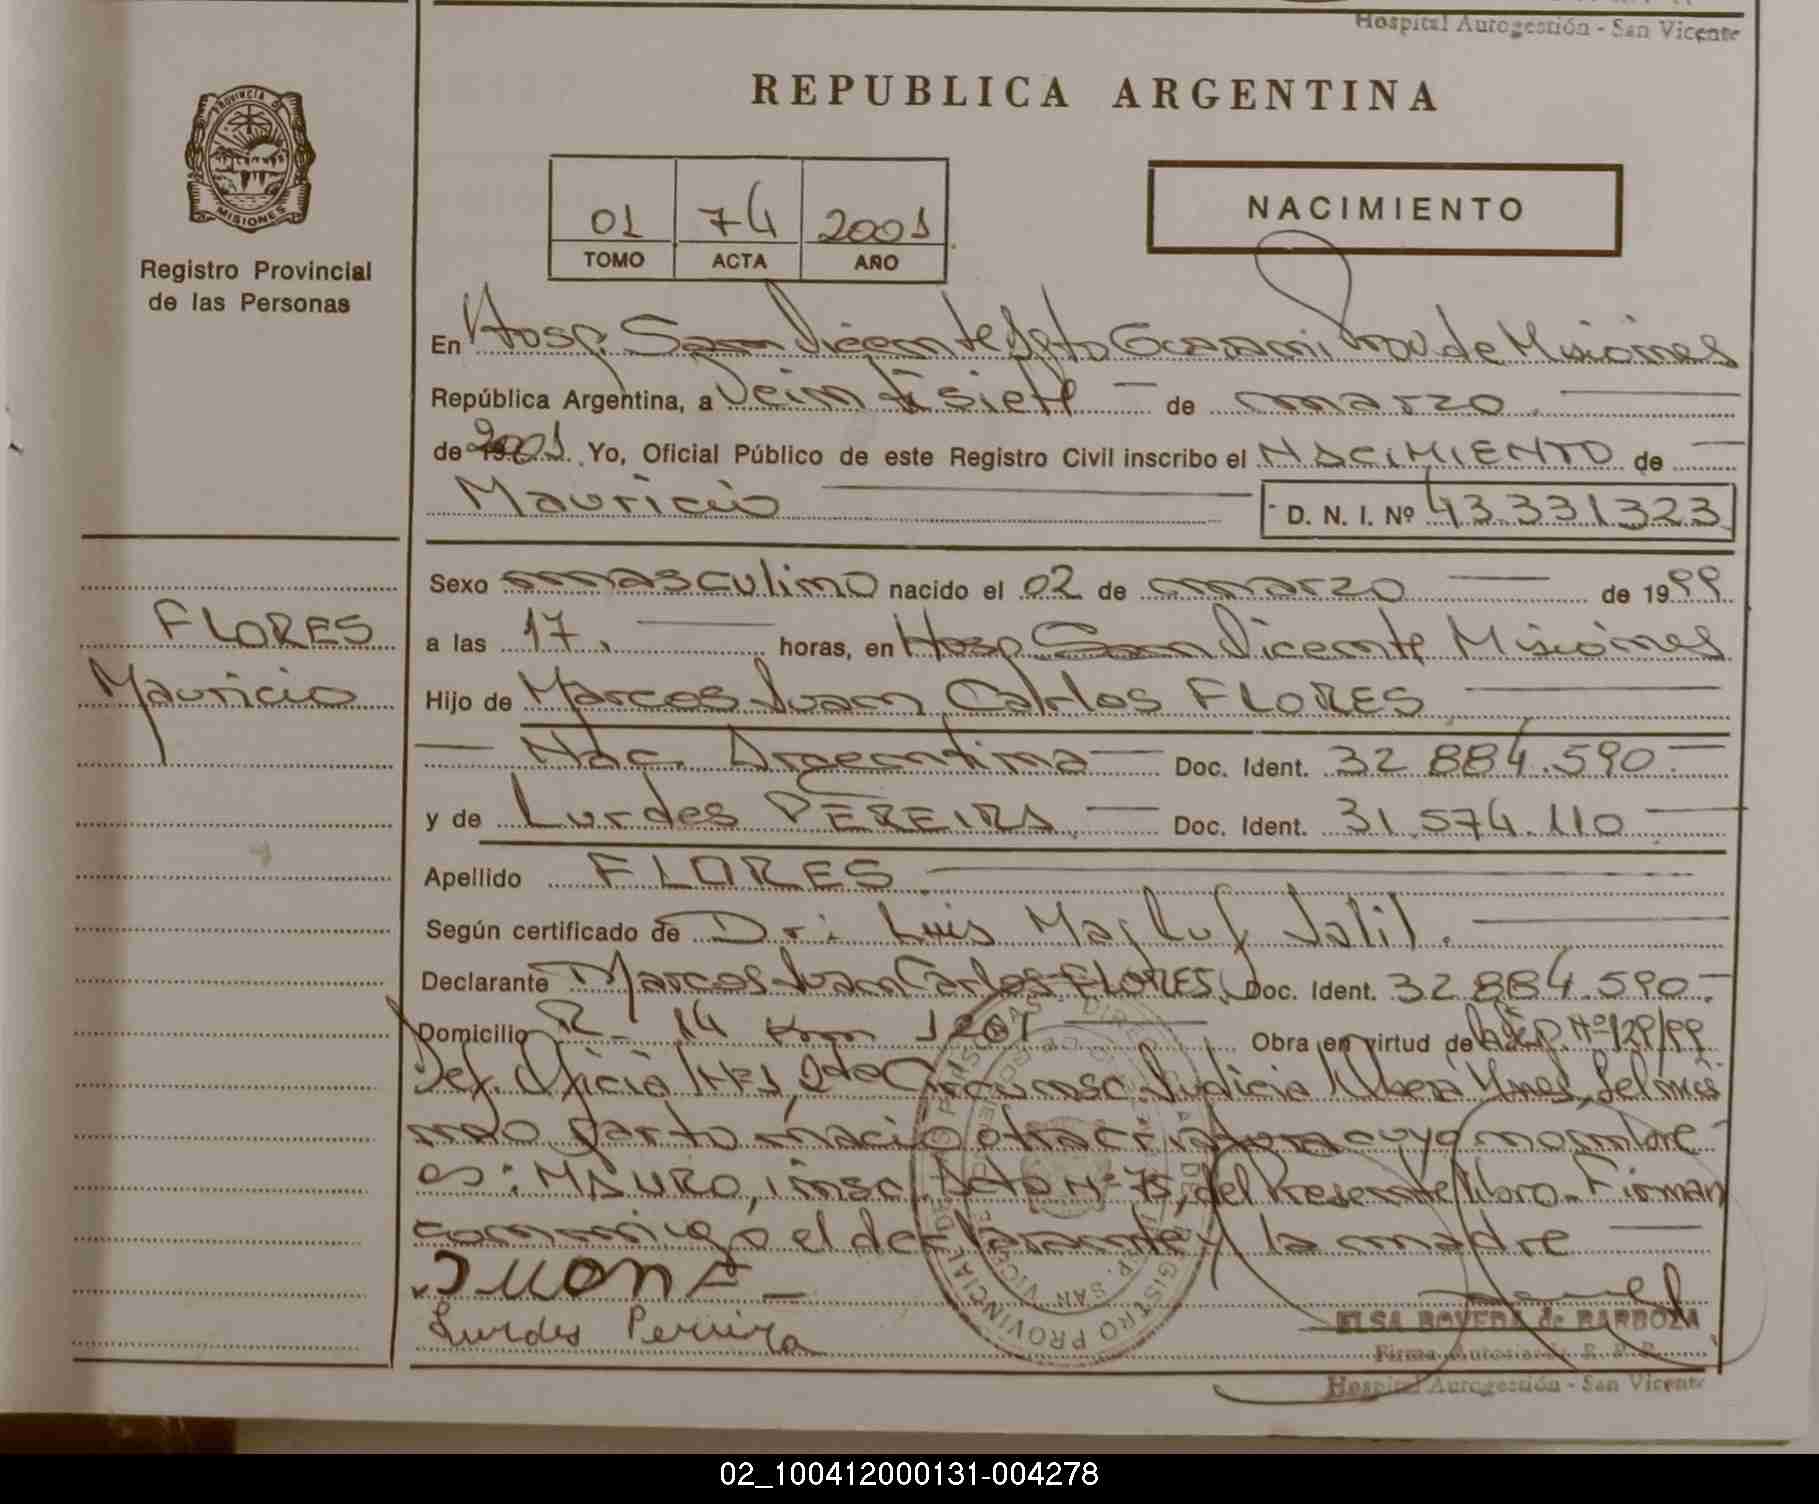 Hospital Autogestión - San Vicente
REPUBLICA ARGENTINA
PROVINCIA DE
MISIONES
Registro Provincial
de las Personas
01 74 2001
TOMO ACTA AÑO
NACIMIENTO
En Hosp. San Vicente Dpto Guarami Prov de Misiones
República Argentina, a Veintisiete — de marzo.
de 2001. Yo, Oficial Público de este Registro Civil inscribo el NACIMIENTO de
Mauricio D. N. I. Nº 43.331.323
Sexo masculino nacido el 02 de marzo de 1999
FLORES
a las 17. horas, en Hosp San Vicente Misiones
Mauricio
Hijo de Marcos Juan Carlos FLORES
— Nac. Argentina — Doc. Ident. 32.884.590.—
y de Lurdes PEREIRA — Doc. Ident. 31.574.110
Apellido FLORES
Según certificado de Dr: Luis Jalil.
Declarante Marcos Juan Carlos FLORES, Doc. Ident. 32.884.590.—
Domicilio R- 14 Km 1201 Obra en virtud de Nº 129/99
Def. Oficial Nº 1, 2da Circunsc. Judicial Obera Mnes, Del mis
mo parto nació otra criatura cuyo nombre
es: MAURO, insc. Acta Nº 75, del Presente libro. Firman
conmigo el declarante y la madre
Lurdes Pereira
REGISTRO PROVINCIAL DE LAS PERSONAS
ELSA BOVEDA de BARBOZA
Firma Autoriz. R. P. P.
Hospital Autogestión - San Vicente
02_100412000131-004278